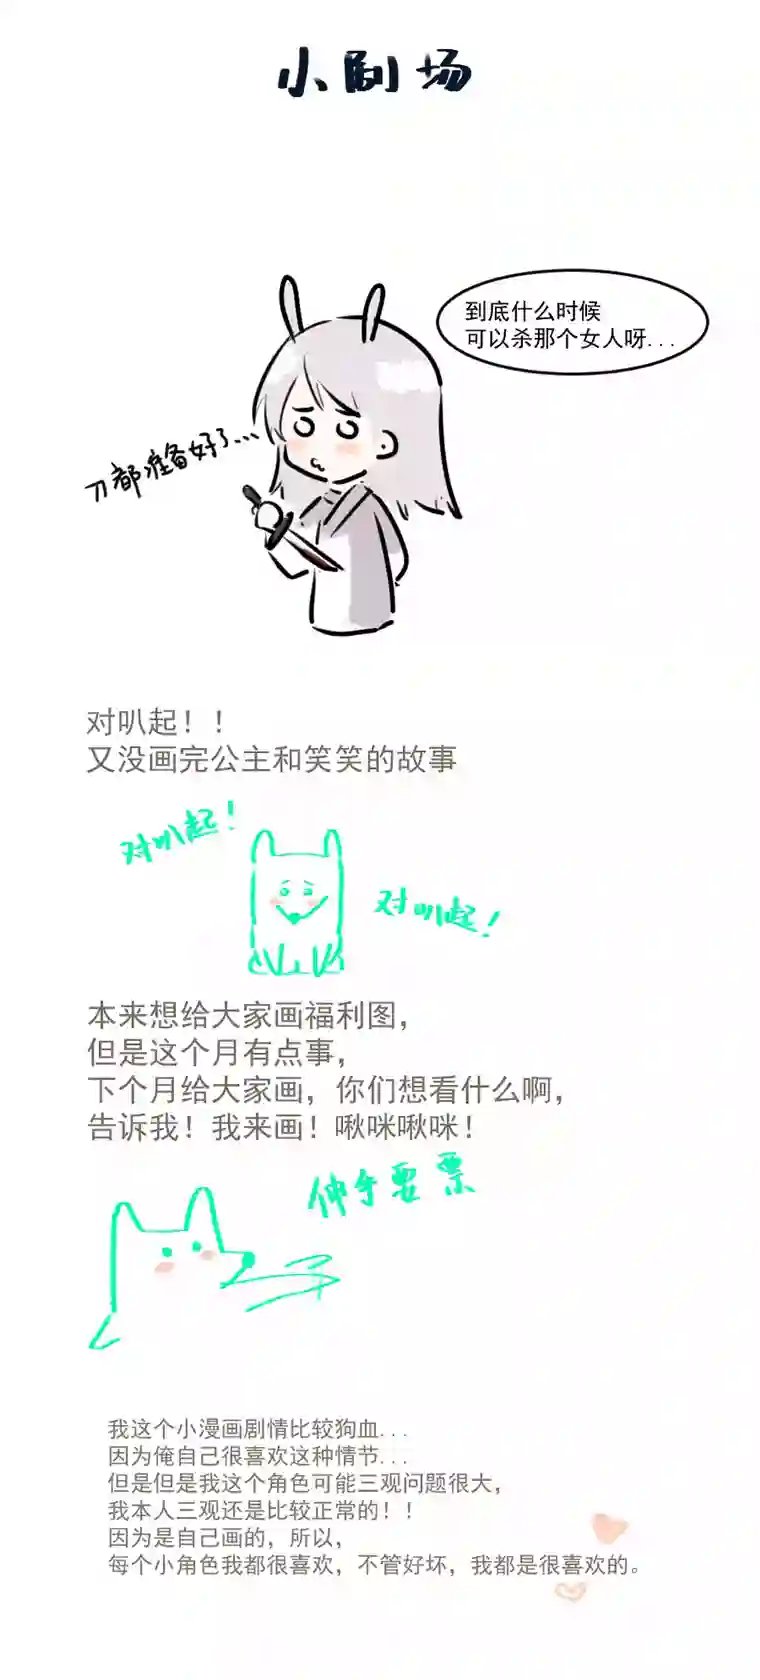 小剧场
到底什么时候
可以杀那个女人呀...
刀都准备好了...
对叭起！！
又没画完公主和笑笑的故事
对叭起！
对叭起！
本来想给大家画福利图，
但是这个月有点事，
下个月给大家画，你们想看什么啊，
告诉我！我来画！啾咪啾咪！
伸手要票
我这个小漫画剧情比较狗血...
因为俺自己很喜欢这种情节...
但是但是我这个角色可能三观问题很大，
我本人三观还是比较正常的！！
因为是自己画的，所以，
每个小角色我都很喜欢，不管好坏，我都是很喜欢的。